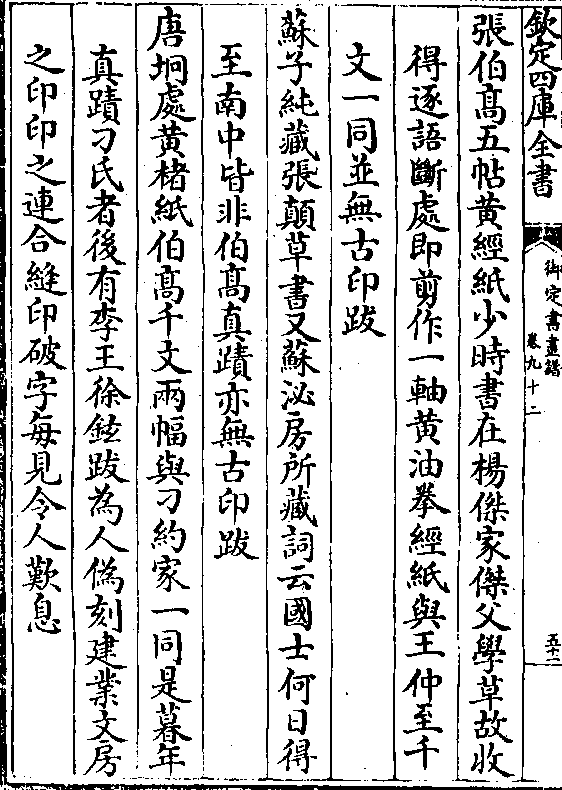 欽定四庫全書
御定書畫譜
卷九十二
五十二
張伯髙五帖黄經紙少時書在楊傑家傑父學草故收
得逐語斷處即剪作一軸黄油拳經紙與王仲至千
文一同並無古印跋
蘇子純藏張顛草書又蘇泌房所藏詞云國士何日得
至南中皆非伯髙真蹟亦無古印跋
唐坰處黄楮紙伯髙千文兩幅與刁約家一同是暮年
真蹟刁氏者後有李王徐鉉跋為人偽刻建業文房
之印印之連合縫印破字每見令人歎息